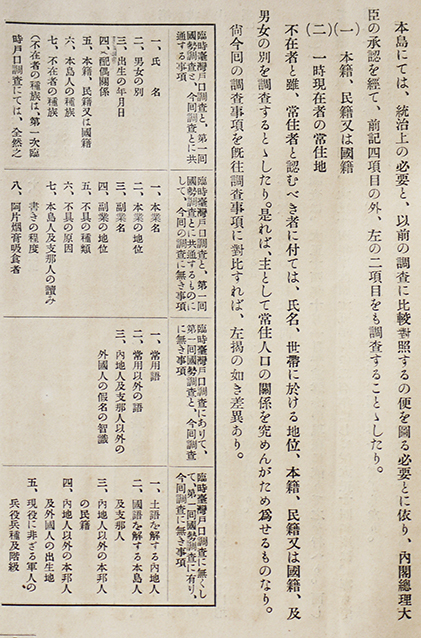 本島にては、統治上の必要と、以前の調査に比較對照するの便を圖る必要とに依り、内閣總理大
臣の承認を經て、前記四項目の外、左の二項目をも調査することゝしたり。
(一) 本籍、民籍又は國籍
(二) 一時現在者の常住地
不在者と雖、常住者と認むべき者に付ては、氏名、世帶に於ける地位、本籍、民籍又は國籍、及
男女の別を調査するとゝしたり。是れば、主として常住人口の關係を究めんがため爲せるものなり。
尙今回の調査事項を既往調査事項に對比すれば、左揭の如き差異あり。
臨時臺灣戸口調査と、第一回
國勢調査と、今回調査とに共
通する事項
一、氏名
二、男女の別
三、出生の年月日
四、配偶關係
五、本籍、民籍又は國籍
六、本島人の種族
七、不在者の種族
(不在者の種族は、第一次臨
時戸口調査にては、全然之
臨時臺灣戸口調査と、第一回
國勢調査とに共通するものに
して、今回の調査に無き事項
一、本業名
二、本業の地位
三、副業名
四、副業の地位
五、不具の種類
六、不具の原因
七、本島人及支那人の讀み
書きの程度
八、阿片烟膏吸食者
臨時臺灣戸口調査にありて、
第一回國勢調査と、今回調査
に無き事項
一、常用語
二、常用以外の語
三、内地人及支那人以外の
外國人の假名の智識
臨時臺灣戸口調査に無くし
て、第一回國勢調査に有り、
今回調査に無き事項
一、土語を解する内地人
二、國語を解する本島人
及支那人
三、内地人以外の本邦人
の民籍
四、内地人以外の本邦人
及外國人の出生地
五、現役に非ざる軍人の
兵役兵種及階級